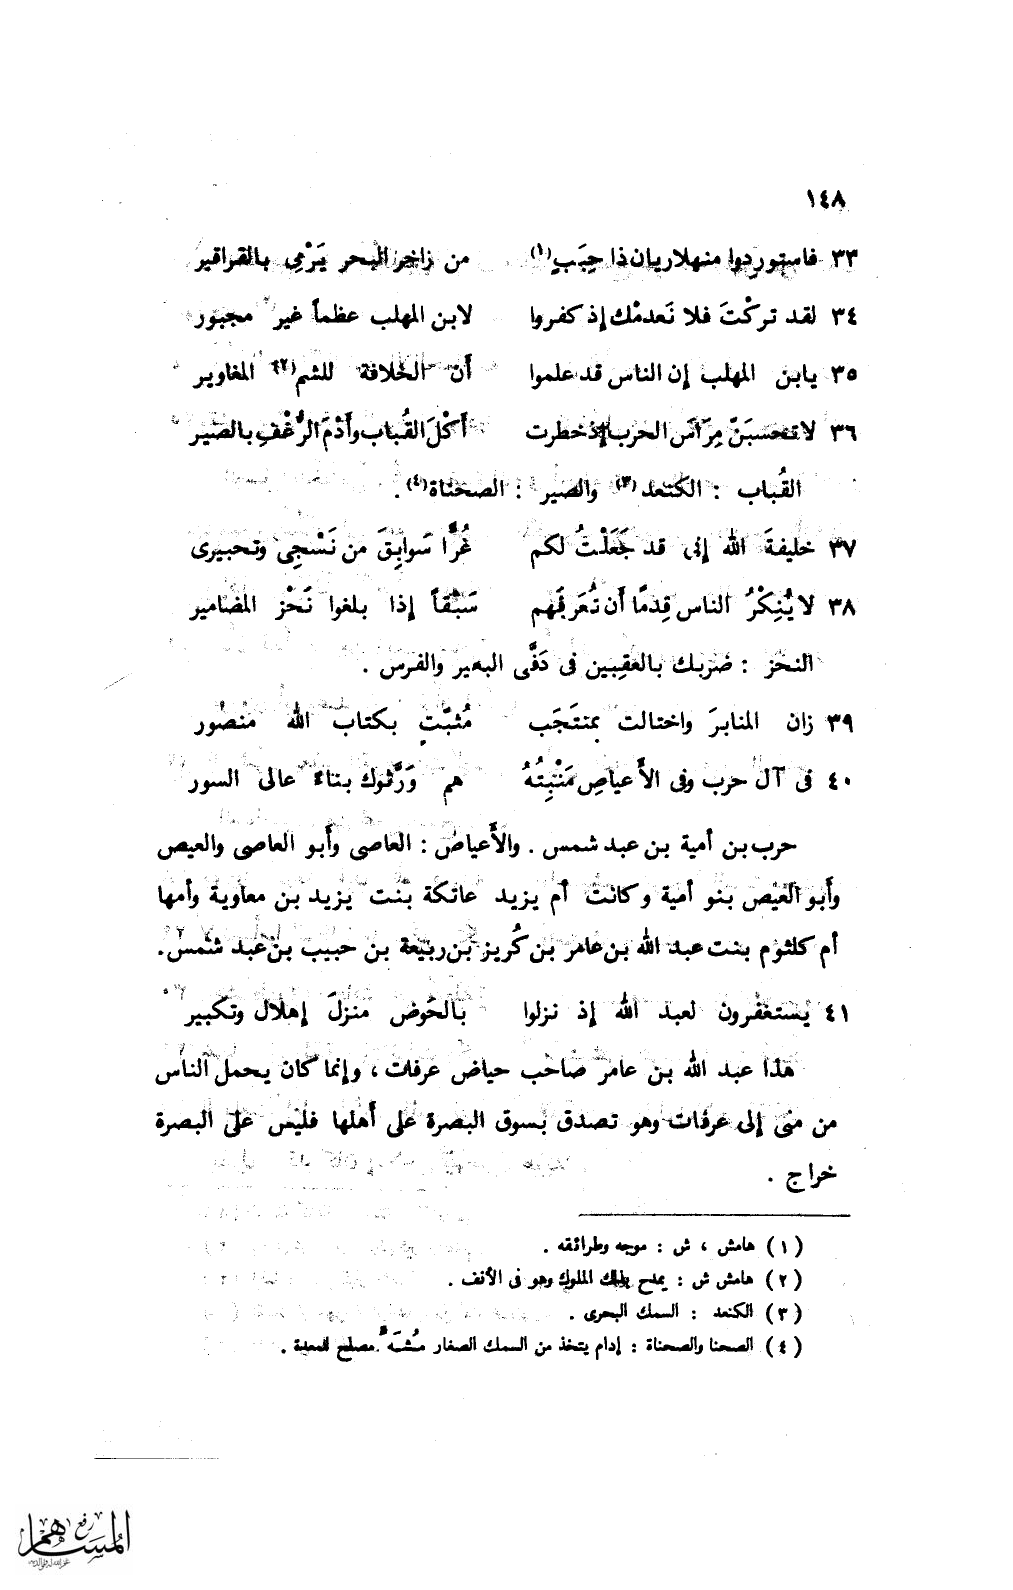 ١٤٨
٣٣ فاستوردوا منهلا ريان ذا حِبَبٍ (١) من زاخر البحر يَرْمى بالقراقير
٣٤ لقد تركْتَ فلا نَعدمْك إذ كفروا لابن المهلب عظماً غير مجبور
٣٥ يابن المهلب إن الناس قد علموا أن الخلافة للشم (٢) المغاوير
٣٦ لا تحسبَنّ مِرَاسَ الحرب إذ خطرت أكْلَ القُباب وأدْمَ الرُّغْفِ بالصير
القُباب : الكنعد (٣) والصير : الصحناة (٤) .
٣٧ خليفةَ الله إنى قد جَعَلْتُ لكم غُرًّا سَوابِقَ من نَسْجِى وتحبيرى
٣٨ لا يُنكِرُ الناس قِدمًا أن تُعَرفَهم سَبْقاً إذا بلغوا نَحْز المضامير
النحز : ضربك بالعَقِبين فى دَفَّى البعير والفرس .
٣٩ زان المنابرَ واختالت بمنتجَب مُثبّتٍ بكتاب الله منصُور
٤٠ فى آل حرب وفى الأعياصِ مَنْبِتُهُ هم وَرَّثوك بناءً عالى السور
حرب بن أمية بن عبد شمس . والأعياص : العاصى وأبو العاصى والعيص
وأبو العيص بنو أمية وكانت أم يزيد عاتكة بنت يزيد بن معاوية وأمها
أم كلثوم بنت عبد الله بن عامر بن كُريز بن ربيعة بن حبيب بن عبد شمس.
٤١ يستغفرون لعبد الله إذ نزلوا بالحَوض منزلَ إهلال وتكبير
هذا عبد الله بن عامر صاحب حياض عرفات ، وإنما كان يحمل الناس
من منى إلى عرفات وهو تصدق بسوق البصرة على أهلها فليس على البصرة
خراج .
(١) هامش ، ش : موجه وطرائقه .
(٢) هامش ش : يمدح بذلك الملوك وهو فى الأنف .
(٣) الكنعد : السمك البحرى .
(٤) الصحنا والصحناة : إدام يتخذ من السمك الصغار مُشَهٍّ مصلح للمعدة .
رفع
المساهم